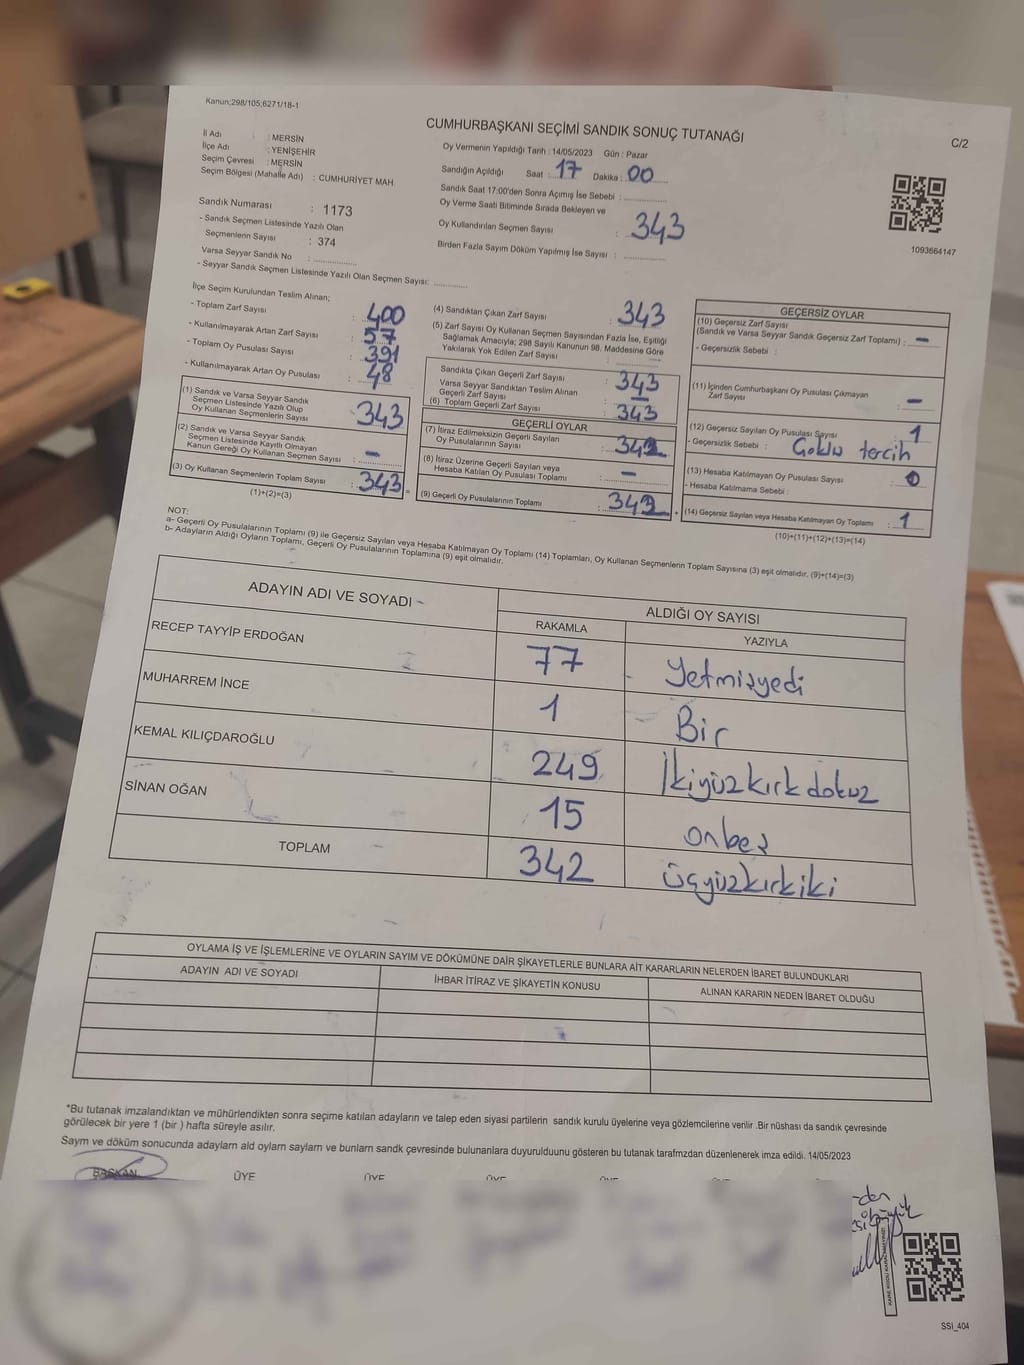 Kanun;298/105;6271/18-1
CUMHURBAŞKANI SEÇİMİ SANDIK SONUÇ TUTANAĞI
C/2
İl Adı : MERSİN
İlçe Adı : YENİŞEHİR
Seçim Çevresi : MERSİN
Seçim Bölgesi (Mahalle Adı) : CUMHURİYET MAH.
Oy Vermenin Yapıldığı Tarih : 14/05/2023 Gün : Pazar
Sandığın Açıldığı Saat : 17 Dakika : 00
Sandık Saat 17:00'den Sonra Açımış İse Sebebi :
Oy Verme Saati Bitiminde Sırada Bekleyen ve
Oy Kullandırılan Seçmen Sayısı : 343
Birden Fazla Sayım Döküm Yapılmış İse Sayısı :
1093664147
Sandık Numarası : 1173
- Sandık Seçmen Listesinde Yazılı Olan
Seçmenlerin Sayısı : 374
Varsa Seyyar Sandık No :
- Seyyar Sandık Seçmen Listesinde Yazılı Olan Seçmen Sayısı:
İlçe Seçim Kurulundan Teslim Alınan;
- Toplam Zarf Sayısı : 400
- Kullanılmayarak Artan Zarf Sayısı : 57
- Toplam Oy Pusulası Sayısı : 391
- Kullanılmayarak Artan Oy Pusulası : 48
(1) Sandık ve Varsa Seyyar Sandık
Seçmen Listesinde Yazılı Olup
Oy Kullanan Seçmenlerin Sayısı : 343
(2) Sandık ve Varsa Seyyar Sandık
Seçmen Listesinde Kayıtlı Olmayan
Kanun Gereği Oy Kullanan Seçmen Sayısı : -
(3) Oy Kullanan Seçmenlerin Toplam Sayısı : 343
(1)+(2)=(3)
(4) Sandıktan Çıkan Zarf Sayısı : 343
(5) Zarf Sayısı Oy Kullanan Seçmen Sayısından Fazla İse, Eşitliği
Sağlamak Amacıyla; 298 Sayılı Kanunun 98. Maddesine Göre
Yakılarak Yok Edilen Zarf Sayısı :
Sandıkta Çıkan Geçerli Zarf Sayısı : 343
Varsa Seyyar Sandıktan Teslim Alınan
Geçerli Zarf Sayısı : -
(6) Toplam Geçerli Zarf Sayısı : 343
GEÇERLİ OYLAR
(7) İtiraz Edilmeksizin Geçerli Sayılan
Oy Pusulasının Sayısı : 342
(8) İtiraz Üzerine Geçerli Sayılan veya
Hesaba Katılan Oy Pusulası Toplamı : -
(9) Geçerli Oy Pusulalarının Toplamı : 342
GEÇERSİZ OYLAR
(10) Geçersiz Zarf Sayısı
(Sandık ve Varsa Seyyar Sandık Geçersiz Zarf Toplamı) : -
- Geçersizlik Sebebi :
(11) İçinden Cumhurbaşkanı Oy Pusulası Çıkmayan
Zarf Sayısı : -
(12) Geçersiz Sayılan Oy Pusulası Sayısı : 1
- Geçersizlik Sebebi : Çoklu tercih
(13) Hesaba Katılmayan Oy Pusulası Sayısı : 0
- Hesaba Katılmama Sebebi :
(14) Geçersiz Sayılan veya Hesaba Katılmayan Oy Toplamı : 1
(10)+(11)+(12)+(13)=(14)
NOT:
a- Geçerli Oy Pusulalarının Toplamı (9) ile Geçersiz Sayılan veya Hesaba Katılmayan Oy Toplamı (14) Toplamları, Oy Kullanan Seçmenlerin Toplam Sayısına (3) eşit olmalıdır. (9)+(14)=(3)
b- Adayların Aldığı Oyların Toplamı, Geçerli Oy Pusulalarının Toplamına (9) eşit olmalıdır.
ADAYIN ADI VE SOYADI
ALDIĞI OY SAYISI
RAKAMLA YAZIYLA
RECEP TAYYİP ERDOĞAN 77 Yetmişyedi
MUHARREM İNCE 1 Bir
KEMAL KILIÇDAROĞLU 249 İkiyüzkırkdokuz
SİNAN OĞAN 15 onbeş
TOPLAM 342 üçyüzkırkiki
OYLAMA İŞ VE İŞLEMLERİNE VE OYLARIN SAYIM VE DÖKÜMÜNE DAİR ŞİKAYETLERLE BUNLARA AİT KARARLARIN NELERDEN İBARET BULUNDUKLARI
ADAYIN ADI VE SOYADI İHBAR İTİRAZ VE ŞİKAYETİN KONUSU ALINAN KARARIN NEDEN İBARET OLDUĞU
*Bu tutanak imzalandıktan ve mühürlendikten sonra seçime katılan adayların ve talep eden siyasi partilerin sandık kurulu üyelerine veya gözlemcilerine verilir .Bir nüshası da sandık çevresinde
görülecek bir yere 1 (bir ) hafta süreyle asılır.
Sayım ve döküm sonucunda adayların ald oyların sayların ve bunların sandk çevresinde bulunanlara duyurulduunu gösteren bu tutanak tarafmzdan düzenlenerek imza edildi. 14/05/2023
BAŞKAN ÜYE ÜYE ÜYE ÜYE ÜYE
SSI_404